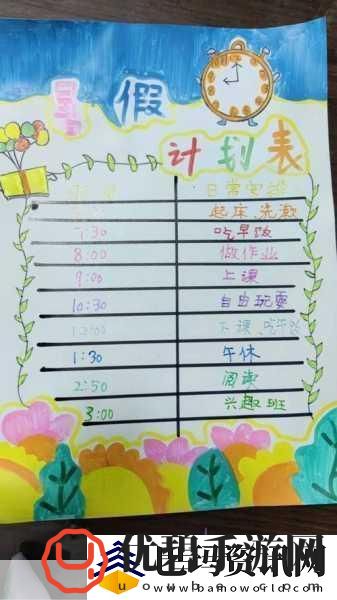 暑假
计划表
日常安排
起床、洗漱
7:30 吃早饭
8:00 做作业
9:00 上课
10:30 自由玩耍
12:00 下课、吃午饭
1:30 午休
2:50 阅读
3:00 兴趣班